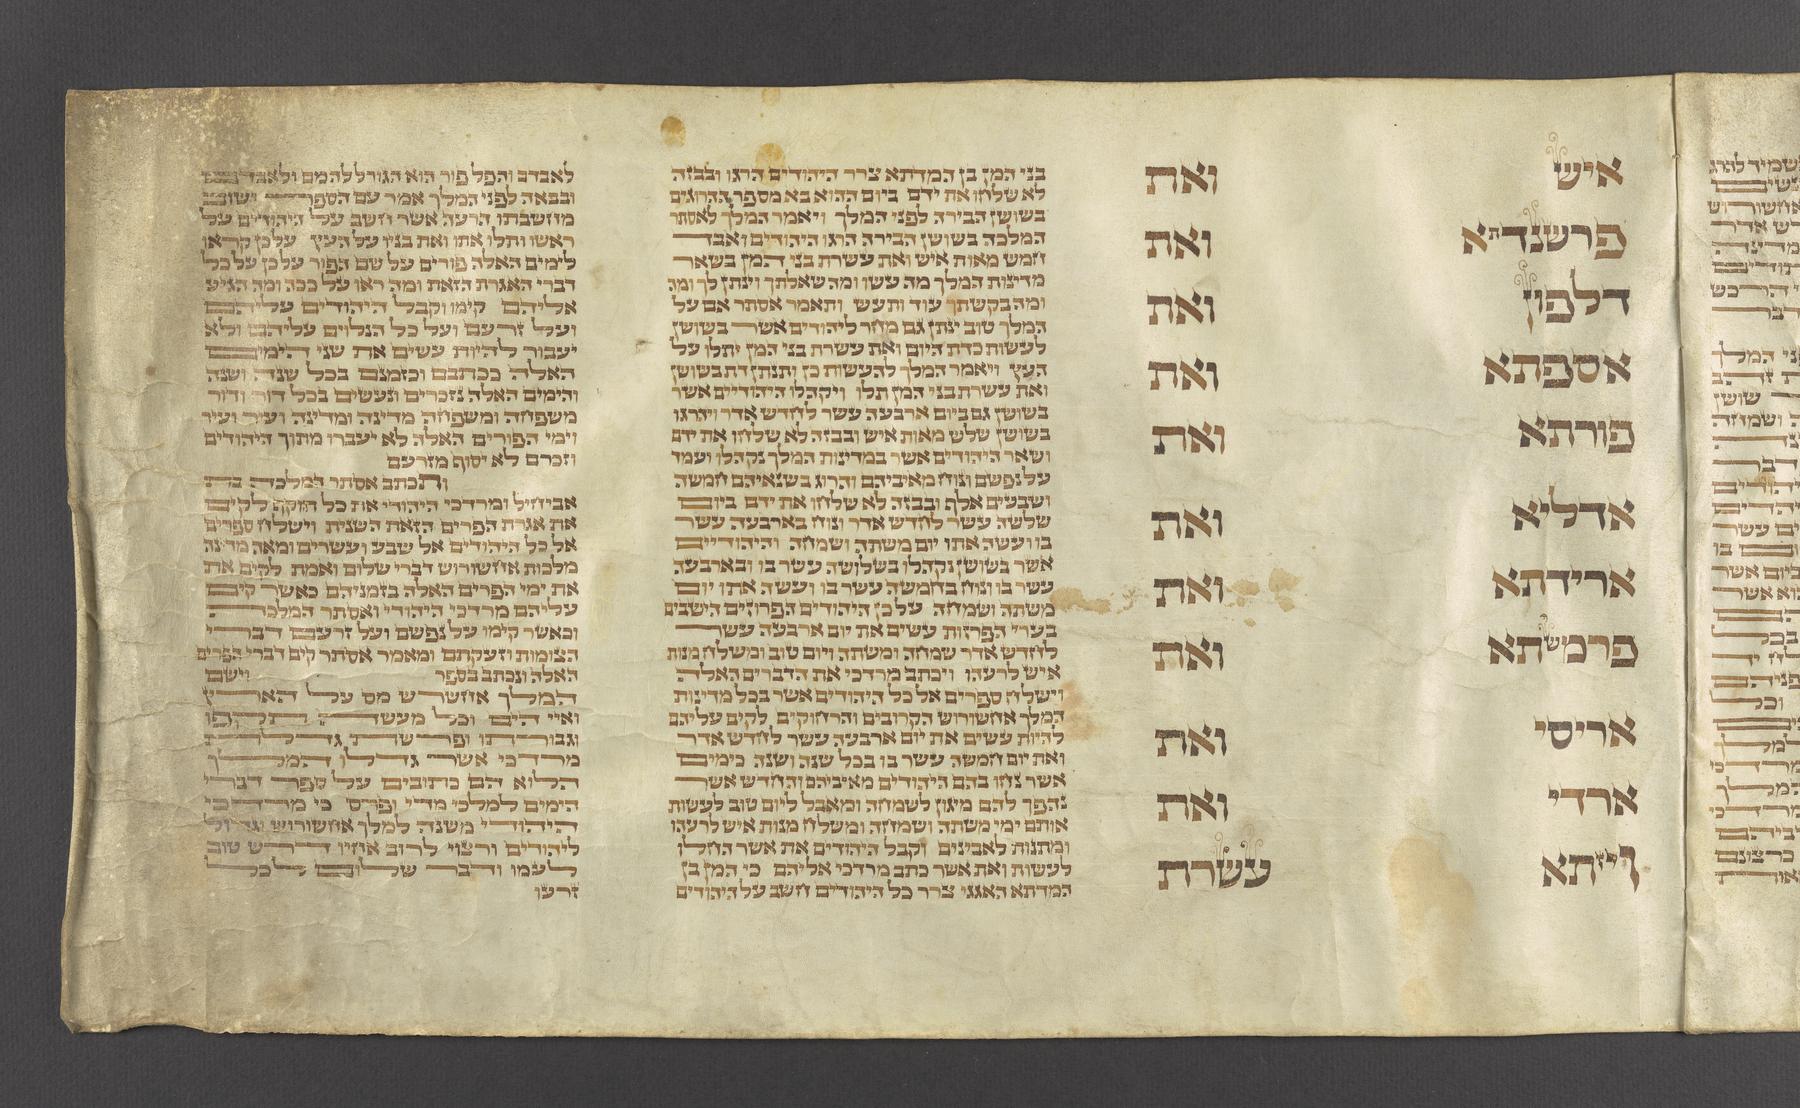 להרג
איש ואת
פרשנדתא ואת
דלפון ואת
אספתא ואת
פורתא ואת
אדליא ואת
ארידתא ואת
פרמשתא ואת
אריסי ואת
ארדי ואת
ויזתא עשרת
בני המן בן המדתא צרר היהודים הרגו ובבזה
לא שלחו את ידם ביום ההוא בא מספר ההרוגים
בשושן הבירה לפני המלך ויאמר המלך לאסתר
המלכה בשושן הבירה הרגו היהודים ואבד
חמש מאות איש ואת עשרת בני המן בשאר
מדינות המלך מה עשו ומה שאלתך וינתן לך ומה
ומה בקשתך עוד ותעש ותאמר אסתר אם על
המלך טוב ינתן גם מחר ליהודים אשר בשושן
לעשות כדת היום ואת עשרת בני המן יתלו על
העץ ויאמר המלך להעשות כן ותנתן דת בשושן
ואת עשרת בני המן תלו ויקהלו היהודיים אשר
בשושן גם ביום ארבעה עשר לחדש אדר ויהרגו
בשושן שלש מאות איש ובבזה לא שלחו את ידם
ושאר היהודים אשר במדינות המלך נקהלו ועמד
על נפשם ונוח מאיביהם והרוג בשנאיהם חמשה
ושבעים אלף ובבזה לא שלחו את ידם ביום
שלשה עשר לחדש אדר ונוח בארבעה עשר
בו ועשה אתו יום משתה ושמחה והיהודיים
אשר בשושן נקהלו בשלושה עשר בו ובארבעה
עשר בו ונוח בחמשה עשר בו ועשה אתו יום
משתה ושמחה על כן היהודים הפרוזים הישבים
בערי הפרזות עשים את יום ארבעה עשר
לחדש אדר שמחה ומשתה ויום טוב ומשלח מנות
איש לרעהו ויכתב מרדכי את הדברים האלה
וישלח ספרים אל כל היהודים אשר בכל מדינות
המלך אחשורוש הקרובים והרחוקים לקים עליהם
להיות עשים את יום ארבעה עשר לחדש אדר
ואת יום חמשה עשר בו בכל שנה ושנה כימים
אשר נחו בהם היהודים מאיביהם והחדש אשר
נהפך להם מיגון לשמחה ומאבל ליום טוב לעשות
אותם ימי משתה ושמחה ומשלח מנות איש לרעהו
ומתנות לאבינים וקבל היהודים את אשר החלו
לעשות ואת אשר כתב מרדכי אליהם כי המן בן
המדתא האגגי צרר כל היהודים חשב על היהודים
לאבדם והפל פור הוא הגורל להמם ולאבדם
ובבאה לפני המלך אמר עם הספר ישוב
מחשבתו הרעה אשר חשב על היהודים על
ראשו ותלו אתו ואת בניו על העץ על כן קראו
לימים האלה פורים על שם הפור על כן על כל
דברי האגרת הזאת ומה ראו על ככה ומה הגיע
אליהם קימו וקבל היהודים עליהם
ועל זרעם ועל כל הנלוים עליהם ולא
יעבור להיות עשים את שני הימים
האלה ככתבם וכזמנם בכל שנה ושנה
והימים האלה נזכרים ונעשים בכל דור ודור
משפחה ומשפחה מדינה ומדינה ועיר ועיר
וימי הפורים האלה לא יעברו מתוך היהודים
וזכרם לא יסוף מזרעם
ותכתב אסתר המלכה בת
אביחיל ומרדכי היהודי את כל תוקף לקים
את אגרת הפרים הזאת השנית וישלח ספרים
אל כל היהודים אל שבע ועשרים ומאה מדינה
מלכות אחשורוש דברי שלום ואמת לקים את
את ימי הפרים האלה בזמניהם כאשר קים
עליהם מרדכי היהודי ואסתר המלכה
וכאשר קימו על נפשם ועל זרעם דברי
הצומות וזעקתם ומאמר אסתר קים דברי הפרים
האלה ונכתב בספר וישם
המלך אחשרש מס על הארץ
ואיי הים וכל מעשה תקפו
וגבורתו ופרשת גדלת
מרדכי אשר גדלו המלך
הלוא הם כתובים על ספר דברי
הימים למלכי מדי ופרס כי מרדכי
היהודי משנה למלך אחשורוש וגדול
ליהודים ורצוי לרוב אחיו דרש טוב
לעמו ודבר שלום לכל
זרעו